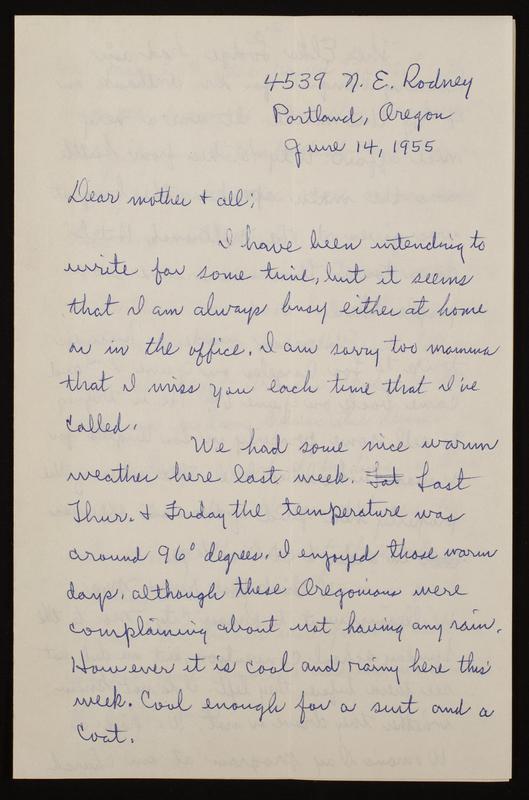 4539 N. E. Rodney
Portland, Oregon
June 14, 1955
Dear mother + all;
I have been intending to
write for some time, but it seems
that I am always busy either at home
or in the office. I am sorry too mamma
that I miss you each time that I've
called.
We had some nice warm
weather here last week. Sat Last
Thur. + Friday the temperature was
around 96° degrees. I enjoyed those warm
days, although these Oregonians were
complaining about not having any rain.
However it is cool and rainy here this
week. Cool enough for a suit and a
coat.